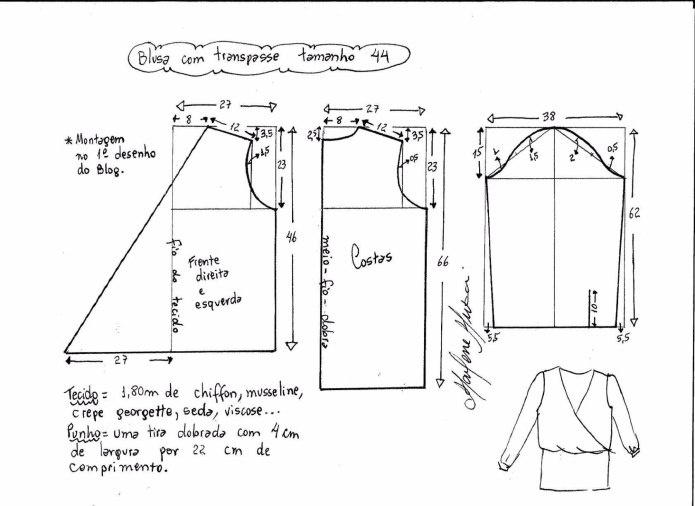 Blusa com transpasse tamanho 44
* Montagem
no 1º desenho
do Blog.
27
8
12
3,5
1,5
23
46
fio do tecido
Frente
direita
e
esquerda
27
27
2,5
8
12
3,5
0,5
23
66
meio - fio - dobra
Costas
38
15
1
1,5
2
0,5
62
10
5,5
5,5
Marlene Mukai
Tecido = 1,80m de chiffon, musseline,
crepe georgette, seda, viscose...
Punho = uma tira dobrada com 4 cm
de largura por 22 cm de
comprimento.